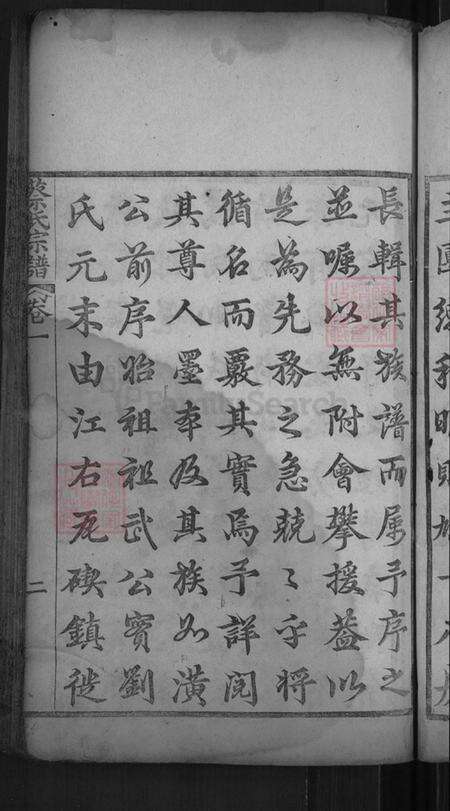 長輯其族譜而屬予序之
並囑以無附會攀援葢以
是為先務之急兢〻乎將
循名而覈其實焉予詳閱
其尊人墨奉及其族如潢
公前序昭祖祖武公實劉
氏元末由江右瓦碶鎮徙
蔡氏宗譜 卷一 二
FamilySearch